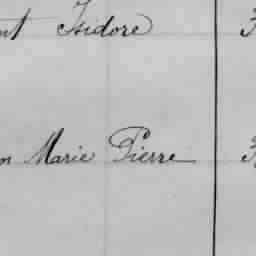 nt Isidore
on Marie Pierre